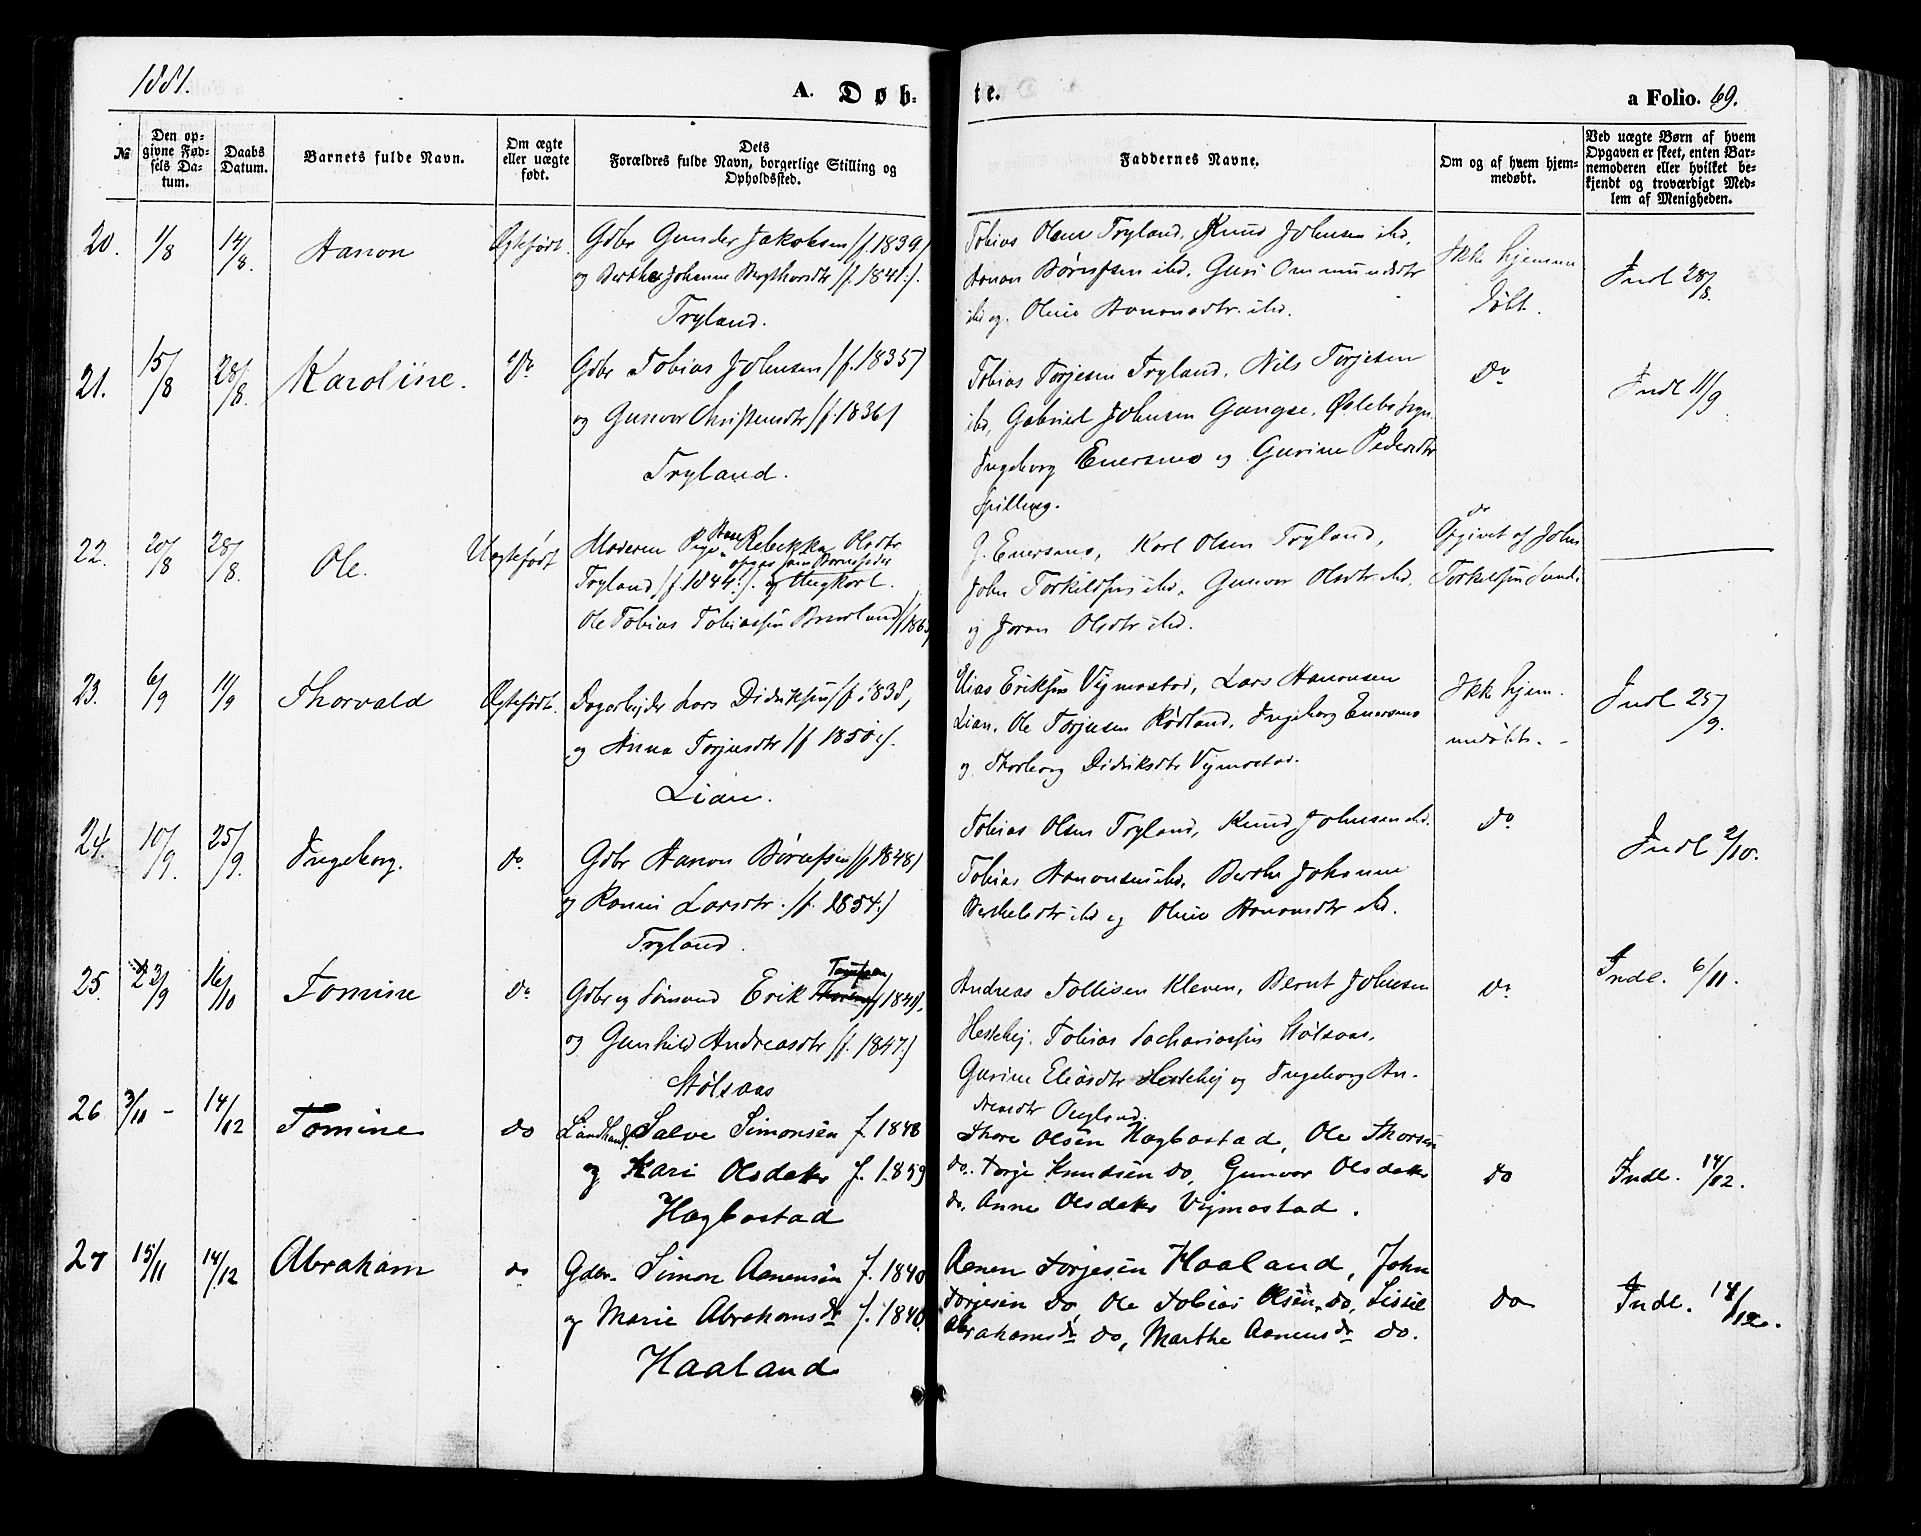 1881.
A. Døb-
te.
a Folio. 69.
№
Den op-
givne Fød-
sels Da-
tum.
Daabs
Datum.
Barnets fulde Navn.
Om ægte
eller uægte
født.
Dets
Forældres fulde Navn, borgerlige Stilling og
Opholdssted.
Faddernes Navne.
Om og af hvem hjem-
medøbt.
Ved uægte Børn af hvem
Opgaven er skeet, enten Bar-
nemoderen eller hvilket be-
kjendt og troværdigt Med-
lem af Menigheden.
20. 1/8 14/8. Hanon Ægtefødt. Gdbr Gunder Jakobsen (f. 1839.)
og Berthe Johanne (f. 1841:).
Tryland.
Tobias Olsen Tryland, Knud Johnsen ibd,
Hanon ibd, Guri Ommundsdtr
ibd og Oline Hanonsdtr. ibd.
Ikke hjemme
døbt.
Indl 28/8.
21. 15/8 28/8. Karoline. Do Gdbr Tobias Johnsen (f. 1835)
og Gunvor Christensdtr (f. 1836)
Tryland.
Tobias Torjesen Tryland, Nils Torjesen
ibd, Gabriel Johnsen Gangse, Øslebø Sogn.
Ingeborg Enersmo og Gurine Pedersdtr
Spilling.
Do
Indl 11/9
22. 20/8 28/8. Ole. Uægtefødt Moderen Pige Rebekka Olsdtr
Tryland (f. 1844:). og Ungkarl.
Ole Tobias Tobiassen
G. Enersmo, Karl Olsen Tryland,
John Torkildsen ibd, Gunvor Olsdtr ibd,
og Joran Olsdtr ibd.
do
Opgivet af John
Torkildsen
23. 6/9 11/9 Thorvald Ægtefødt. Dagarbejder Lars Didriksen (f. 1838,
og Anna Torjusdtr (f 1850:).
Lian.
Elias Eriksen Vigmostad, Lars Hanonsen
Lian, Ole Torjusen Rødland, Ingeborg Enersmo
og Thorborg Didriksdtr Vigmostad.
Ikke hjem-
medøbt. -
Indl 25/9.
24. 10/9. 25/9. Ingeborg. do Gdbr Hanon (f 1848)
og Larsdtr. (f. 1854.)
Tryland.
Tobias Olsen Tryland, Knud Johnsen ibd.
Tobias Hanonsen ibd, Berthe Johanne
ibd og Oline Hanonsdtr ibd.
do
Indl 2/10.
25. 23/9 16/10 Tomine Do Gdbr og Sømand Erik
og Gunhild Andreasdtr (f. 1847.)
Stølsaas
Andreas Tollisen Kleven, Bernt Johnsen
Hestehej, Tobias Sachariassen Stølsaas,
Gurine Eliasdtr Hestehej og Ingeborg An-
dreasdtr
Do
Indl. 6/11.
26 3/11 - 14/12 Tomine do Salve Simonsen f. 1848
og Kari Olsdatter f. 1859
Hægbostad
Thore Olsen Hægbostad, Ole Thorsen
do. Torje Knudsen do, Gunvor Olsdatter
do. Anne Olsdatter Vigmostad.
do
Indl. 14/12.
27 15/11 14/12 Abraham do Gdbr. Simon Aanensen f. 1840
og Marie Abrahamsdr f. 1840.
Haaland
Aanen Torjesen Haaland, John
Torjesen do, Ole Tobias Olsen do, Sissel
Abrahamsdr do, Marthe Aanensdr do.
do
Indl. 14/12.